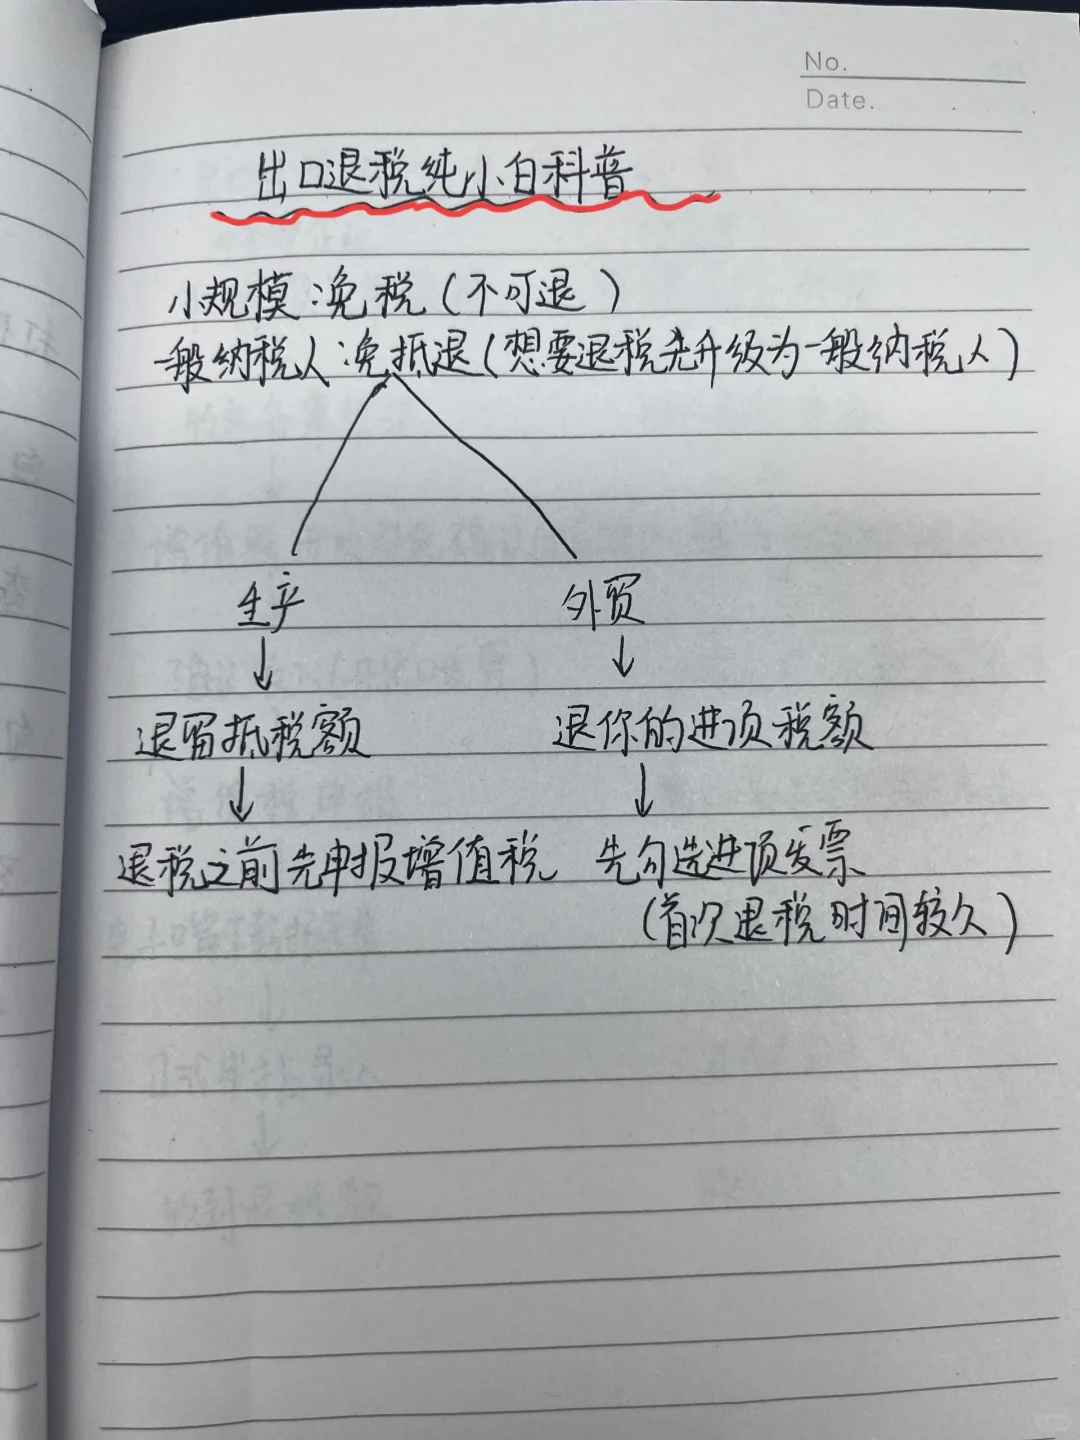 No.
Date.
出口退税纯小白科普
小规模:免税(不可退)
一般纳税人:免抵退(想要退税先升级为一般纳税人)
生产 外贸
↓ ↓
退留抵税额 退你的进项税额
↓ ↓
退税之前先申报增值税 先勾选进项发票
(首次退税时间较久)